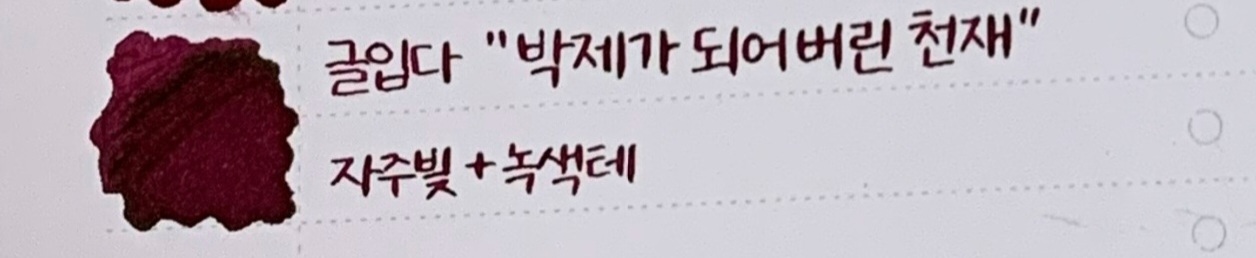 글입다 "박제가 되어버린 천재"
자주빛 + 녹색테